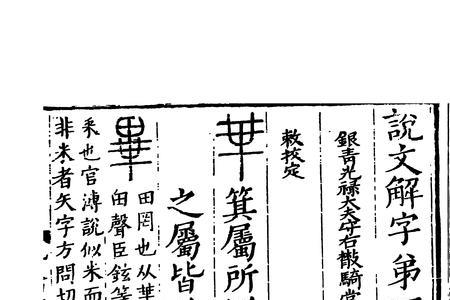 說文解字弟
銀青光祿大夫守右散騎常
敕校定
𠦒 箕屬所
之屬皆
畢 田罔也从𠦒
甶聲臣鉉等
釆也官溥說似米而
非米者矢字方問切